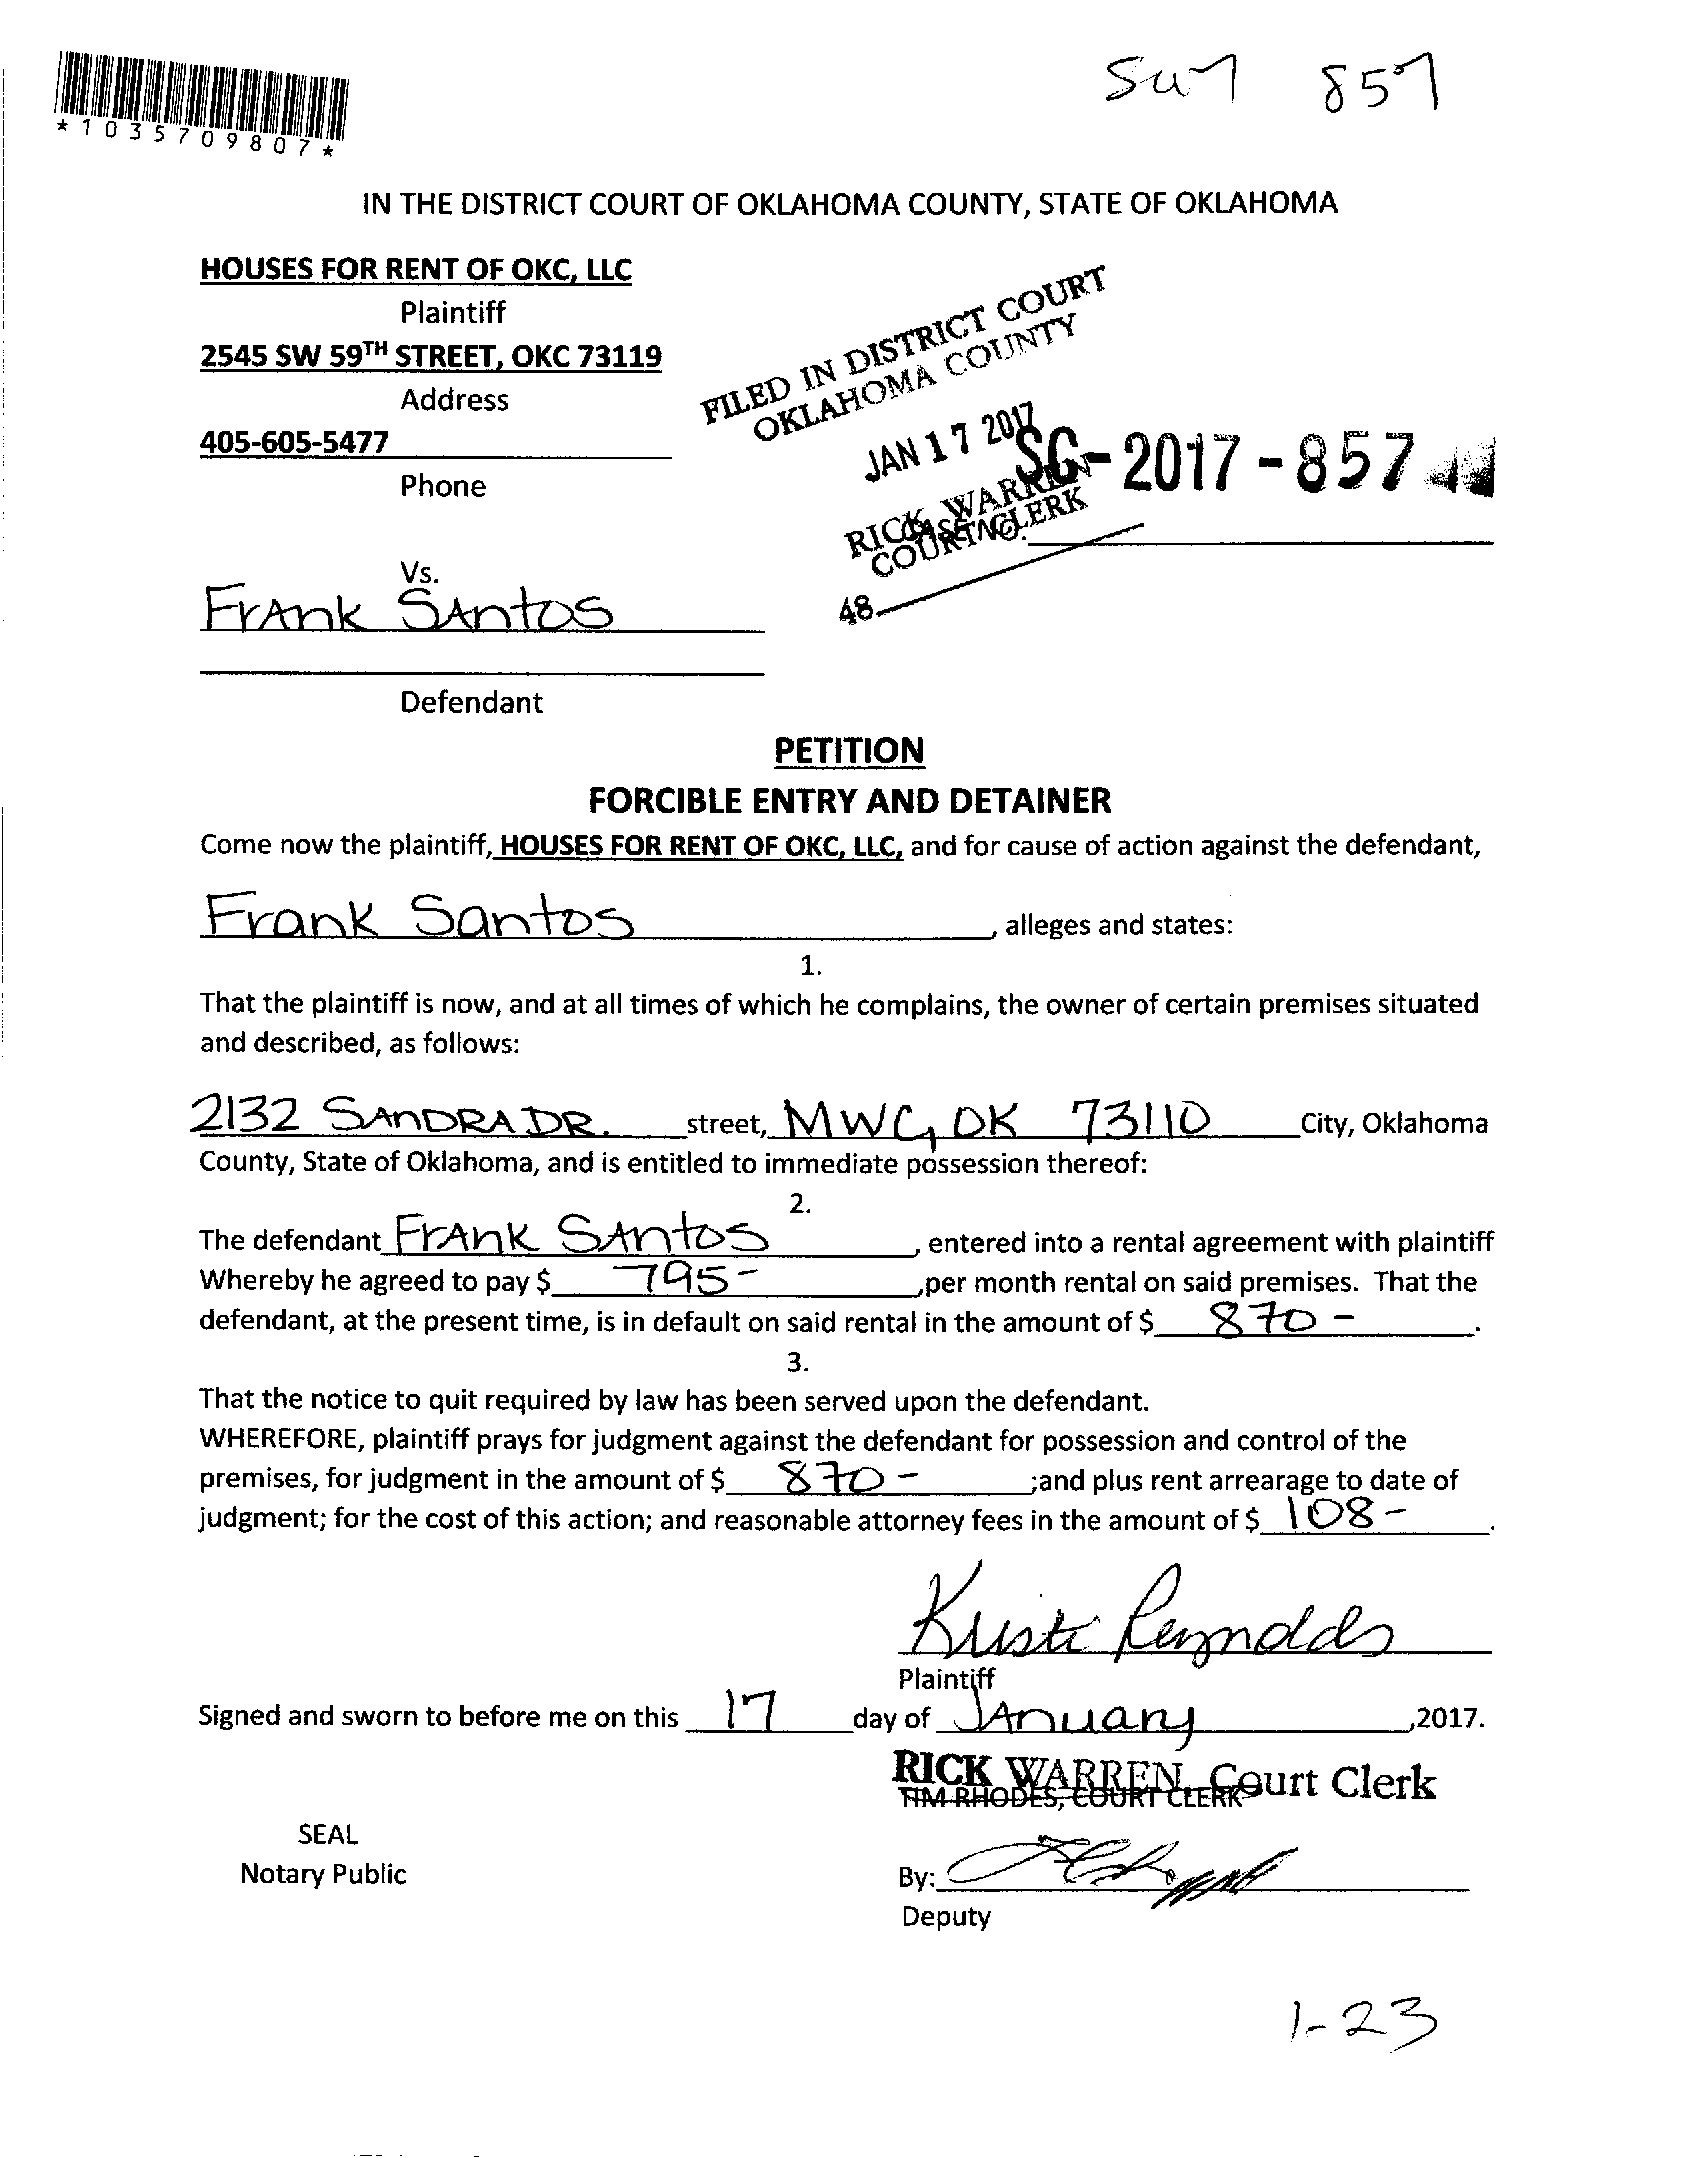 857
*1035709807*
IN THE DISTRICT COURT OF OKLAHOMA COUNTY, STATE OF OKLAHOMA
HOUSES FOR RENT OF OKC, LLC
Plaintiff
2545 SW 59TH STREET, OKC 73119
Address
405-605-5477
Phone
FILED IN DISTRICT COURT
OKLAHOMA COUNTY
JAN 17 2017
SC-2017-857
RICK WARREN
COURT CLERK
CASE NO.
48
Vs.
FrAnk SAntos
Defendant
PETITION
FORCIBLE ENTRY AND DETAINER
Come now the plaintiff, HOUSES FOR RENT OF OKC, LLC, and for cause of action against the defendant,
Frank Santos, alleges and states:
1.
That the plaintiff is now, and at all times of which he complains, the owner of certain premises situated
and described, as follows:
2132 SAnDRA DR. street, MWC, OK 73110 City, Oklahoma
County, State of Oklahoma, and is entitled to immediate possession thereof:
2.
The defendant FrAnk SAntos, entered into a rental agreement with plaintiff
Whereby he agreed to pay $ 795- ,per month rental on said premises. That the
defendant, at the present time, is in default on said rental in the amount of $ 870- .
3.
That the notice to quit required by law has been served upon the defendant.
WHEREFORE, plaintiff prays for judgment against the defendant for possession and control of the
premises, for judgment in the amount of $ 870- ;and plus rent arrearage to date of
judgment; for the cost of this action; and reasonable attorney fees in the amount of $ 108- .
Kristi Reynolds
Plaintiff
Signed and sworn to before me on this 17 day of JAnuary ,2017.
RICK WARREN, Court Clerk
TIM RHODES, COURT CLERK
SEAL
Notary Public
By:
Deputy
1-23